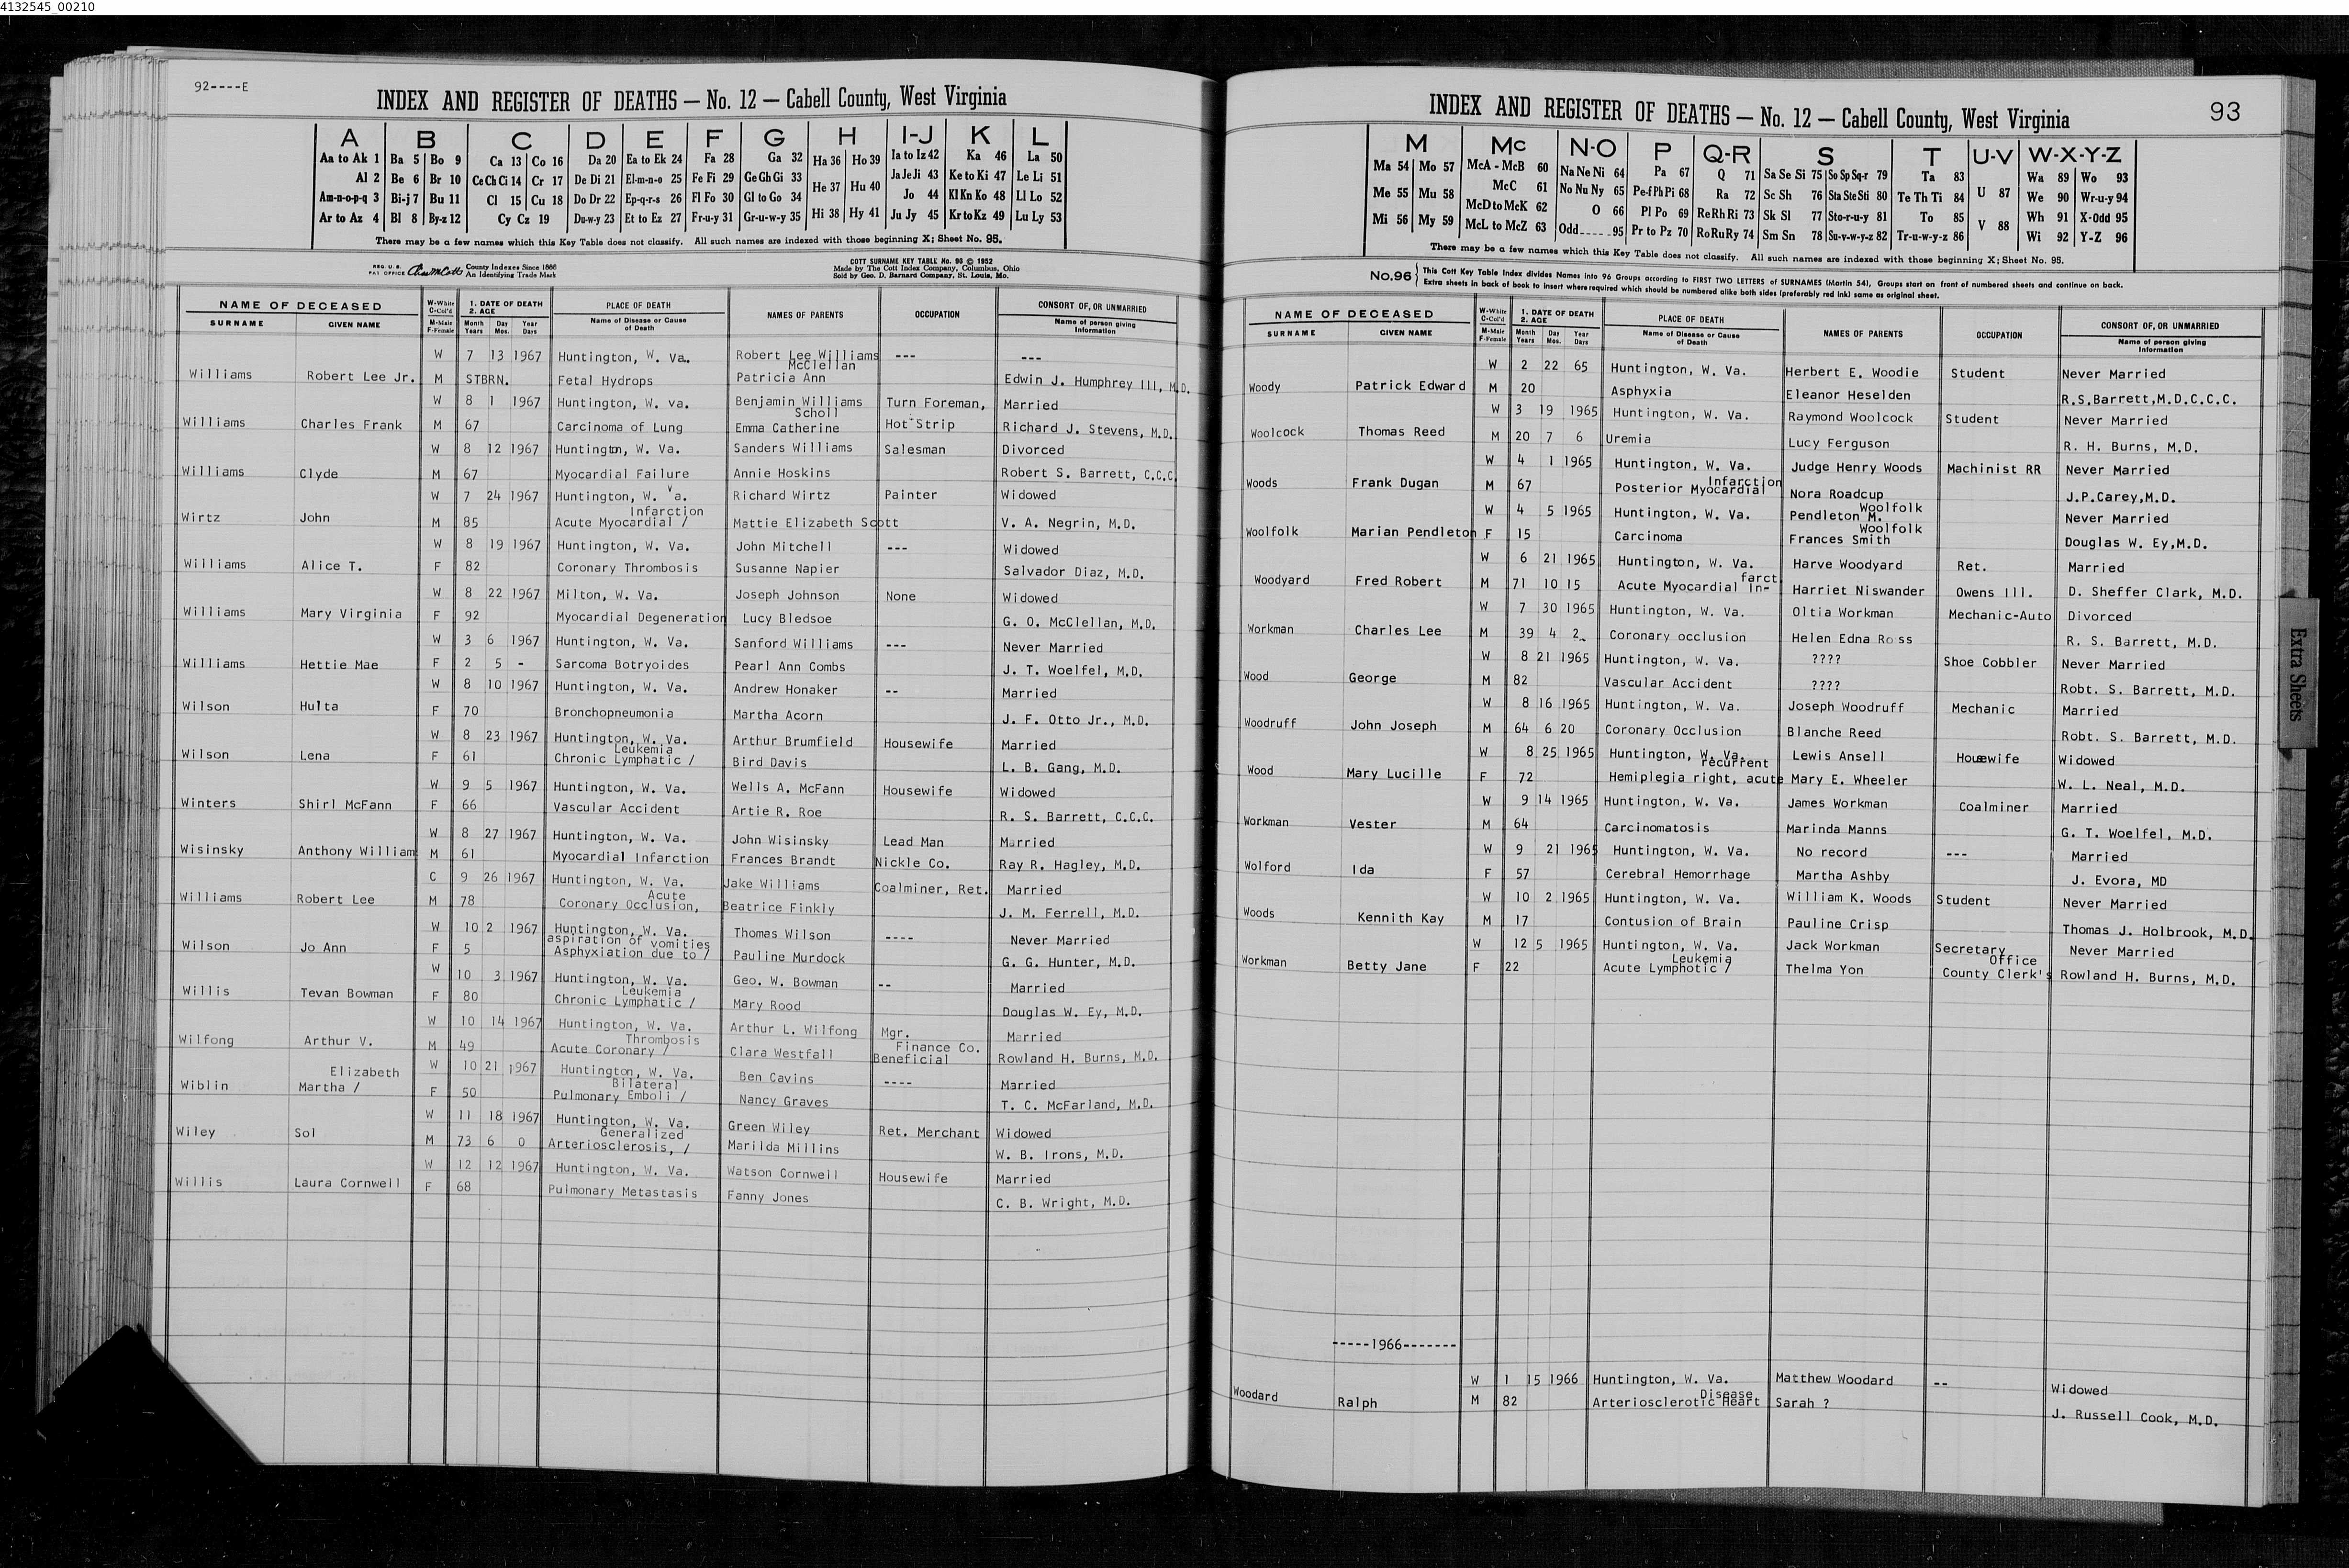 4132545_00210
92----E
INDEX AND REGISTER OF DEATHS — No. 12 — Cabell County, West Virginia
A B C D E F G H I-J K L
Aa to Ak 1 Ba 5 Bo 9 Ca 13 Co 16 Da 20 Ea to Ek 24 Fa 28 Ga 32 Ha 36 Ho 39 Ia to Iz 42 Ka 46 La 50
Al 2 Be 6 Br 10 Ce Ch Ci 14 Cr 17 De Di 21 El-m-n-o 25 Fe Fi 29 Ge Gh Gi 33 He 37 Hu 40 Ja Je Ji 43 Ke to Ki 47 Le Li 51
Am-n-o-p-q 3 Bi-j 7 Bu 11 Cl 15 Cu 18 Do Dr 22 Ep-q-r-s 26 Fl Fo 30 Gl to Go 34 Hi 38 Hy 41 Jo 44 Kl Kn Ko 48 Ll Lo 52
Ar to Az 4 Bl 8 By-z 12 Cy Cz 19 Du-w-y 23 Et to Ez 27 Fr-u-y 31 Gr-u-w-y 35 Ju Jy 45 Kr to Kz 49 Lu Ly 53
There may be a few names which this Key Table does not classify. All such names are indexed with those beginning X; Sheet No. 95.
REG. U.S. PAT. OFFICE County Indexes Since 1888 An Identifying Trade Mark
COTT SURNAME KEY TABLE No. 96 © 1952
Made by The Cott Index Company, Columbus, Ohio
Sold by Geo. D. Barnard Company, St. Louis, Mo.
NAME OF DECEASED W-White C-Col'd 1. DATE OF DEATH 2. AGE PLACE OF DEATH NAMES OF PARENTS OCCUPATION CONSORT OF, OR UNMARRIED
SURNAME GIVEN NAME M-Male F-Female Month Years Day Mos. Year Days Name of Disease or Cause of Death Name of person giving information
W 7 13 1967 Huntington, W. Va. Robert Lee Williams --- ---
McClellan
Williams Robert Lee Jr. M STBRN. Fetal Hydrops Patricia Ann Edwin J. Humphrey III, M.D.
W 8 1 1967 Huntington, W. va. Benjamin Williams Turn Foreman, Married
Scholl
Williams Charles Frank M 67 Carcinoma of Lung Emma Catherine Hot Strip Richard J. Stevens, M.D.
W 8 12 1967 Huntington, W. Va. Sanders Williams Salesman Divorced
Williams Clyde M 67 Myocardial Failure Annie Hoskins Robert S. Barrett, C.C.C.
W 7 24 1967 Huntington, W. Va. Richard Wirtz Painter Widowed
Infarction
Wirtz John M 85 Acute Myocardial / Mattie Elizabeth Scott V. A. Negrin, M.D.
W 8 19 1967 Huntington, W. Va. John Mitchell --- Widowed
Williams Alice T. F 82 Coronary Thrombosis Susanne Napier Salvador Diaz, M.D.
W 8 22 1967 Milton, W. Va. Joseph Johnson None Widowed
Williams Mary Virginia F 92 Myocardial Degeneration Lucy Bledsoe G. O. McClellan, M.D.
W 3 6 1967 Huntington, W. Va. Sanford Williams --- Never Married
Williams Hettie Mae F 2 5 - Sarcoma Botryoides Pearl Ann Combs J. T. Woelfel, M.D.
W 8 10 1967 Huntington, W. Va. Andrew Honaker -- Married
Wilson Hulta F 70 Bronchopneumonia Martha Acorn J. F. Otto Jr., M.D.
W 8 23 1967 Huntington, W. Va. Arthur Brumfield Housewife Married
Leukemia
Wilson Lena F 61 Chronic Lymphatic / Bird Davis L. B. Gang, M.D.
W 9 5 1967 Huntington, W. Va. Wells A. McFann Housewife Widowed
Winters Shirl McFann F 66 Vascular Accident Artie R. Roe R. S. Barrett, C.C.C.
W 8 27 1967 Huntington, W. Va. John Wisinsky Lead Man Married
Wisinsky Anthony William M 61 Myocardial Infarction Frances Brandt Nickle Co. Ray R. Hagley, M.D.
C 9 26 1967 Huntington, W. Va. Jake Williams Coalminer, Ret. Married
Acute
Williams Robert Lee M 78 Coronary Occlusion, Beatrice Finkly J. M. Ferrell, M.D.
W 10 2 1967 Huntington, W. Va. Thomas Wilson ---- Never Married
aspiration of vomities
Wilson Jo Ann F 5 Asphyxiation due to / Pauline Murdock G. G. Hunter, M.D.
W 10 3 1967 Huntington, W. Va. Geo. W. Bowman -- Married
Leukemia
Willis Tevan Bowman F 80 Chronic Lymphatic / Mary Rood Douglas W. Ey, M.D.
W 10 14 1967 Huntington, W. Va. Arthur L. Wilfong Mgr. Married
Thrombosis Finance Co.
Wilfong Arthur V. M 49 Acute Coronary / Clara Westfall Beneficial Rowland H. Burns, M.D.
Elizabeth W 10 21 1967 Huntington, W. Va. Ben Cavins ---- Married
Bilateral
Wiblin Martha / F 50 Pulmonary Emboli / Nancy Graves T. C. McFarland, M.D.
W 11 18 1967 Huntington, W. Va. Green Wiley Ret. Merchant Widowed
Generalized
Wiley Sol M 73 6 0 Arteriosclerosis, / Marilda Millins W. B. Irons, M.D.
W 12 12 1967 Huntington, W. Va. Watson Cornwell Housewife Married
Willis Laura Cornwell F 68 Pulmonary Metastasis Fanny Jones C. B. Wright, M.D.
INDEX AND REGISTER OF DEATHS — No. 12 — Cabell County, West Virginia 93
M Mc N-O P Q-R S T U-V W-X-Y-Z
Ma 54 Mo 57 McA - McB 60 Na Ne Ni 64 Pa 67 Q 71 Sa Se Si 75 So Sp Sq-r 79 Ta 83 U 87 Wa 89 Wo 93
Me 55 Mu 58 McC 61 No Nu Ny 65 Pe-f Ph Pi 68 Ra 72 Sc Sh 76 Sta Ste Sti 80 Te Th Ti 84 We 90 Wr-u-y 94
Mi 56 My 59 McD to McK 62 O 66 Pl Po 69 Re Rh Ri 73 Sk Sl 77 Sto-r-u-y 81 To 85 V 88 Wh 91 X-Odd 95
McL to McZ 63 Odd----95 Pr to Pz 70 Ro Ru Ry 74 Sm Sn 78 Su-v-w-y-z 82 Tr-u-w-y-z 86 Wi 92 Y-Z 96
There may be a few names which this Key Table does not classify. All such names are indexed with those beginning X; Sheet No. 95.
No. 96 This Cott Key Table Index divides Names into 96 Groups according to FIRST TWO LETTERS of SURNAMES (Martin 54), Groups start on front of numbered sheets and continue on back.
Extra sheets in back of book to insert where required which should be numbered alike both sides (preferably red ink) same as original sheet.
NAME OF DECEASED W-White C-Col'd 1. DATE OF DEATH 2. AGE PLACE OF DEATH NAMES OF PARENTS OCCUPATION CONSORT OF, OR UNMARRIED
SURNAME GIVEN NAME M-Male F-Female Month Years Day Mos. Year Days Name of Disease or Cause of Death Name of person giving information
W 2 22 65 Huntington, W. Va. Herbert E. Woodie Student Never Married
Woody Patrick Edward M 20 Asphyxia Eleanor Heselden R.S.Barrett,M.D.C.C.C.
W 3 19 1965 Huntington, W. Va. Raymond Woolcock Student Never Married
Woolcock Thomas Reed M 20 7 6 Uremia Lucy Ferguson R. H. Burns, M.D.
W 4 1 1965 Huntington, W. Va. Judge Henry Woods Machinist RR Never Married
Infarction
Woods Frank Dugan M 67 Posterior Myocardial Nora Roadcup J.P.Carey,M.D.
Woolfolk
W 4 5 1965 Huntington, W. Va. Pendleton M. Never Married
Woolfolk
Woolfolk Marian Pendleton F 15 Carcinoma Frances Smith Douglas W. Ey,M.D.
W 6 21 1965 Huntington, W. Va. Harve Woodyard Ret. Married
farct
Woodyard Fred Robert M 71 10 15 Acute Myocardial In- Harriet Niswander Owens Ill. D. Sheffer Clark, M.D.
W 7 30 1965 Huntington, W. Va. Oltia Workman Mechanic-Auto Divorced
Workman Charles Lee M 39 4 2 Coronary occlusion Helen Edna Ross R. S. Barrett, M.D.
W 8 21 1965 Huntington, W. Va. ???? Shoe Cobbler Never Married
Wood George M 82 Vascular Accident ???? Robt. S. Barrett, M.D.
W 8 16 1965 Huntington, W. Va. Joseph Woodruff Mechanic Married
Woodruff John Joseph M 64 6 20 Coronary Occlusion Blanche Reed Robt. S. Barrett, M.D.
W 8 25 1965 Huntington, W. Va. Lewis Ansell Housewife Widowed
recurrent
Wood Mary Lucille F 72 Hemiplegia right, acute Mary E. Wheeler W. L. Neal, M.D.
W 9 14 1965 Huntington, W. Va. James Workman Coalminer Married
Workman Vester M 64 Carcinomatosis Marinda Manns G. T. Woelfel, M.D.
W 9 21 1965 Huntington, W. Va. No record --- Married
Wolford Ida F 57 Cerebral Hemorrhage Martha Ashby J. Evora, MD
W 10 2 1965 Huntington, W. Va. William K. Woods Student Never Married
Woods Kennith Kay M 17 Contusion of Brain Pauline Crisp Thomas J. Holbrook, M.D.
W 12 5 1965 Huntington, W. Va. Jack Workman Secretary Never Married
Leukemia Office
Workman Betty Jane F 22 Acute Lymphotic / Thelma Yon County Clerk's Rowland H. Burns, M.D.
-----1966-------
W 1 15 1966 Huntington, W. Va. Matthew Woodard -- Widowed
Disease
Woodard Ralph M 82 Arteriosclerotic Heart Sarah ? J. Russell Cook, M.D.
Extra Sheets